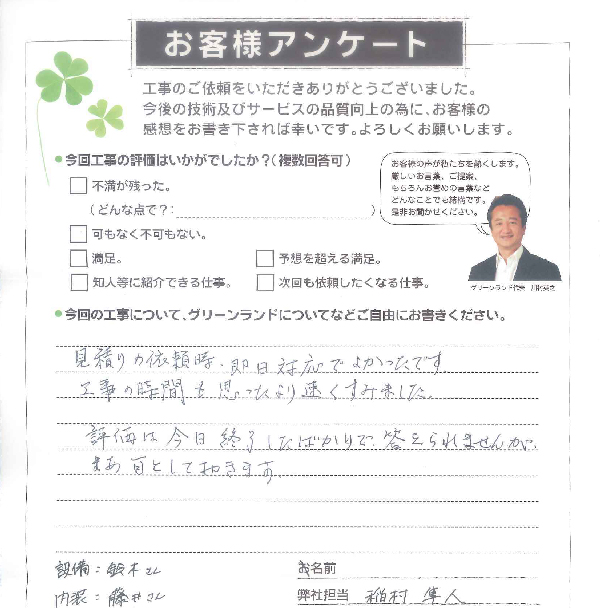 お客様アンケート
工事のご依頼をいただきありがとうございました。
今後の技術及びサービスの品質向上の為に、お客様の
感想をお書き下されば幸いです。よろしくお願いします。
●今回工事の評価はいかがでしたか?(複数回答可)
不満が残った。
(どんな点で?: )
可もなく不可もない。
満足。 予想を超える満足。
知人等に紹介できる仕事。 次回も依頼したくなる仕事。
お客様の声が私たちを熱くします。
厳しいお言葉、ご提案、
もちろんお誉めの言葉など
どんなことでも結構です。
是非お聞かせください。
グリーンランド代表
●今回の工事について、グリーンランドについてなどご自由にお書きください。
見積りの依頼時、即日対応でよかったです
工事の時間も思ったより速くすみました。
評価は今日終了したばかりで、答えられませんが、
まあ可として於きます。
設備:鈴木さん
内装:藤井さん
お名前
弊社担当 稲村 隼人